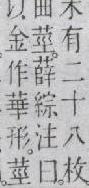 末有二十八枚
曲莖薛綜注曰
以金作華形莖